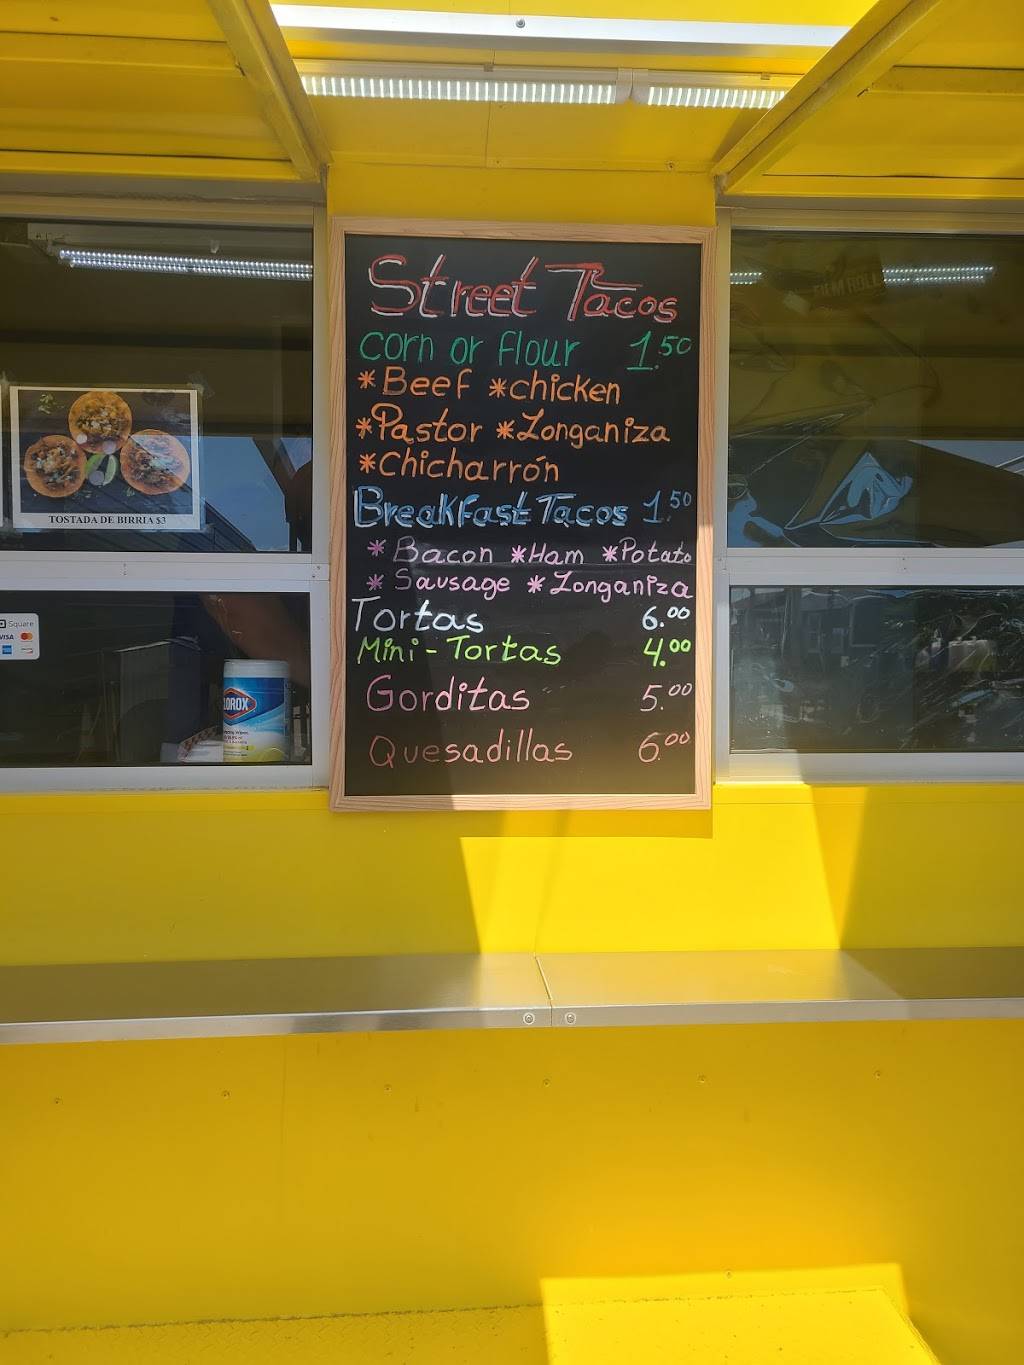 Street Tacos
corn or flour 1.50
*Beef *chicken
*Pastor *Longaniza
*Chicharrón
Breakfast Tacos 1.50
*Bacon *Ham *Potato
*Sausage *Longaniza
Tortas 6.00
Mini-Tortas 4.00
Gorditas 5.00
Quesadillas 6.00
TOSTADA DE BIRRIA $3
Square
VISA
LOROX
FILM ROLL